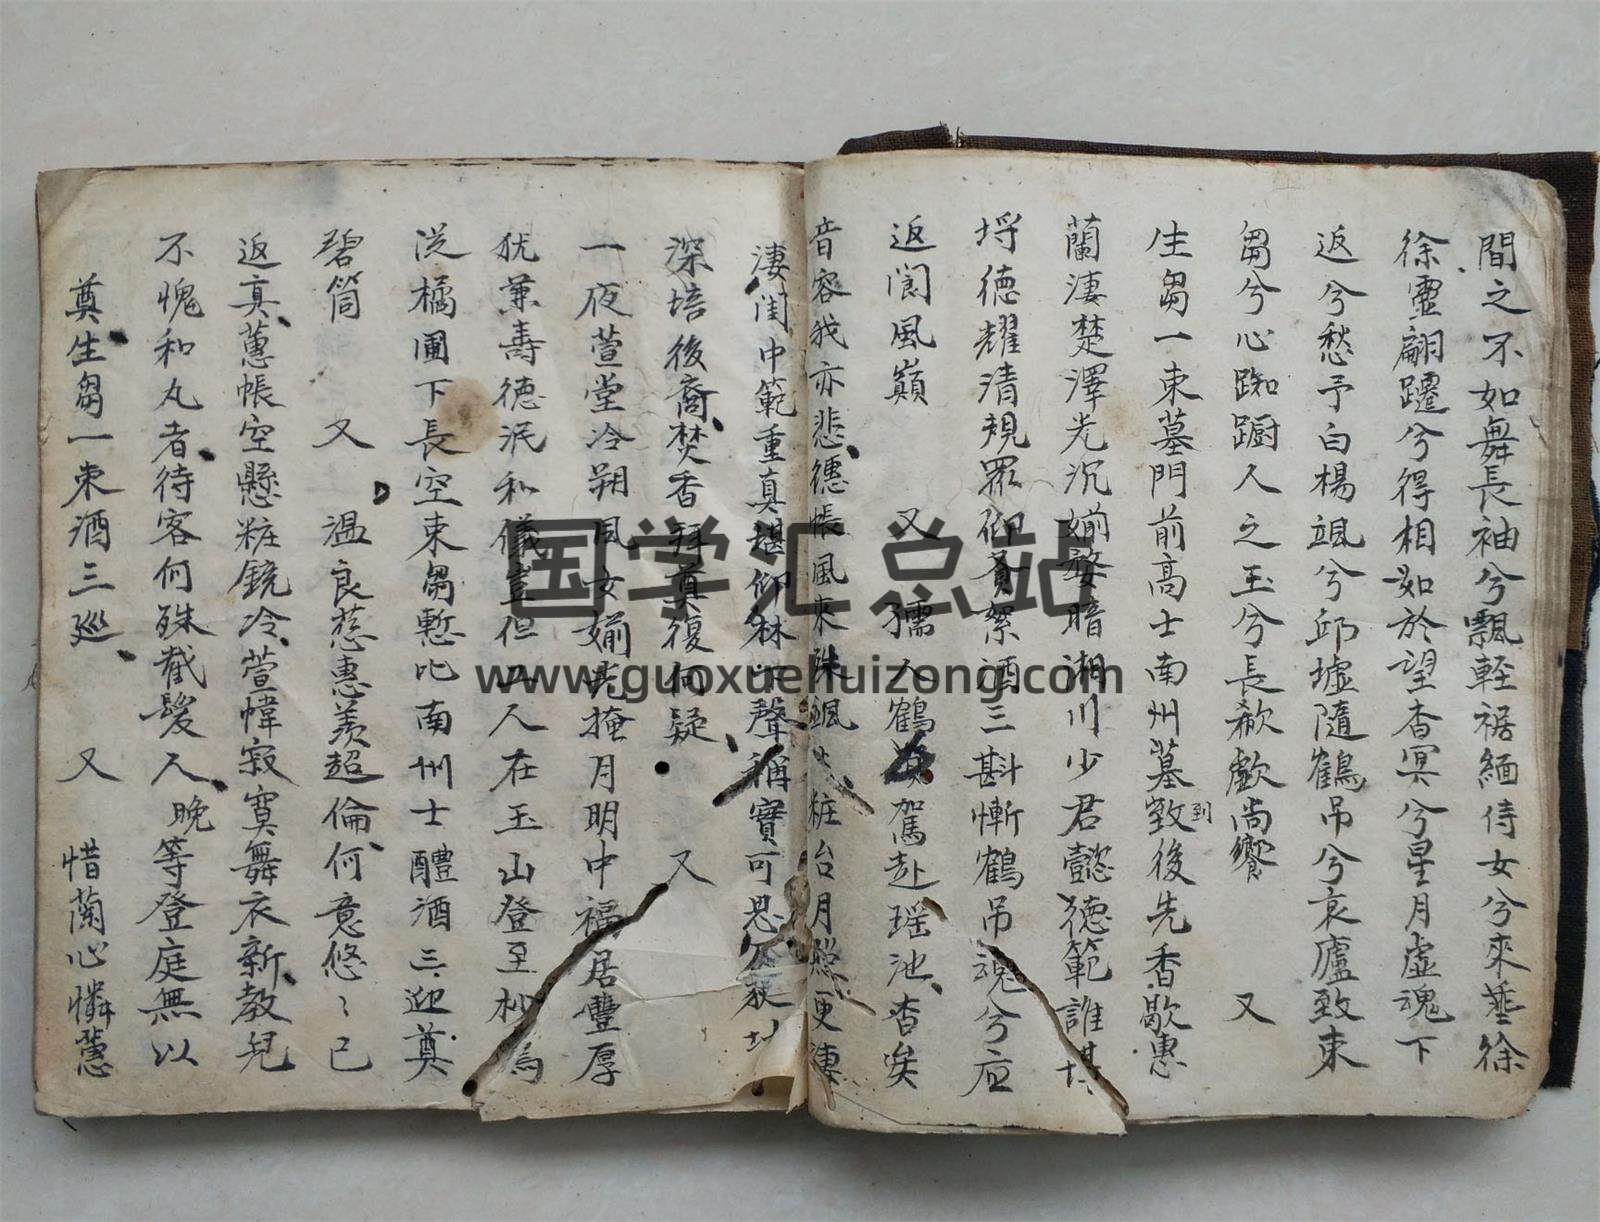 間之不如舞長袖兮飄輊裾緬侍女兮來垂徐
徐靈翩躚兮得相如於望杳冥兮星月虛魂下
返兮愁予白楊颯兮邱墟隨鶴吊兮哀廬致束
芻兮心踟蹰人之玉兮長欷歔尚饗 又
生芻一束墓門前高士南州墓致到後先香歇惠
蘭淒楚澤光沉婺暗湘川少君懿德範誰堪
埒德耀清規罪仰絮酒三斟慚鶴吊魂兮应
返閬風巔 又 孺人鶴駕赴瑶池杳唉
音容我亦悲德帳風來颯粧台月照更凄
淒闺中範重真堪仰林聲稱寶可思荻
深培後裔焚香拜奠復何疑 又
一夜萱堂冷朔風女婺光掩月明中福居豐厚
犹兼壽德泯和儀豈但人在玉山登至
従橘圃下長空束芻慙比南州士醴酒三迎奠
碧筒 又 温良慈惠羡超倫何意悠〻已
返真蕙帳空懸粧鏡冷萱幃寂寞舞衣新教兒
不愧和丸者待客何殊截髮人晚等登庭無以
奠生芻一束酒三巡 又 惜蘭心憐蕙
国学汇总站
www.guoxuehuizong.com